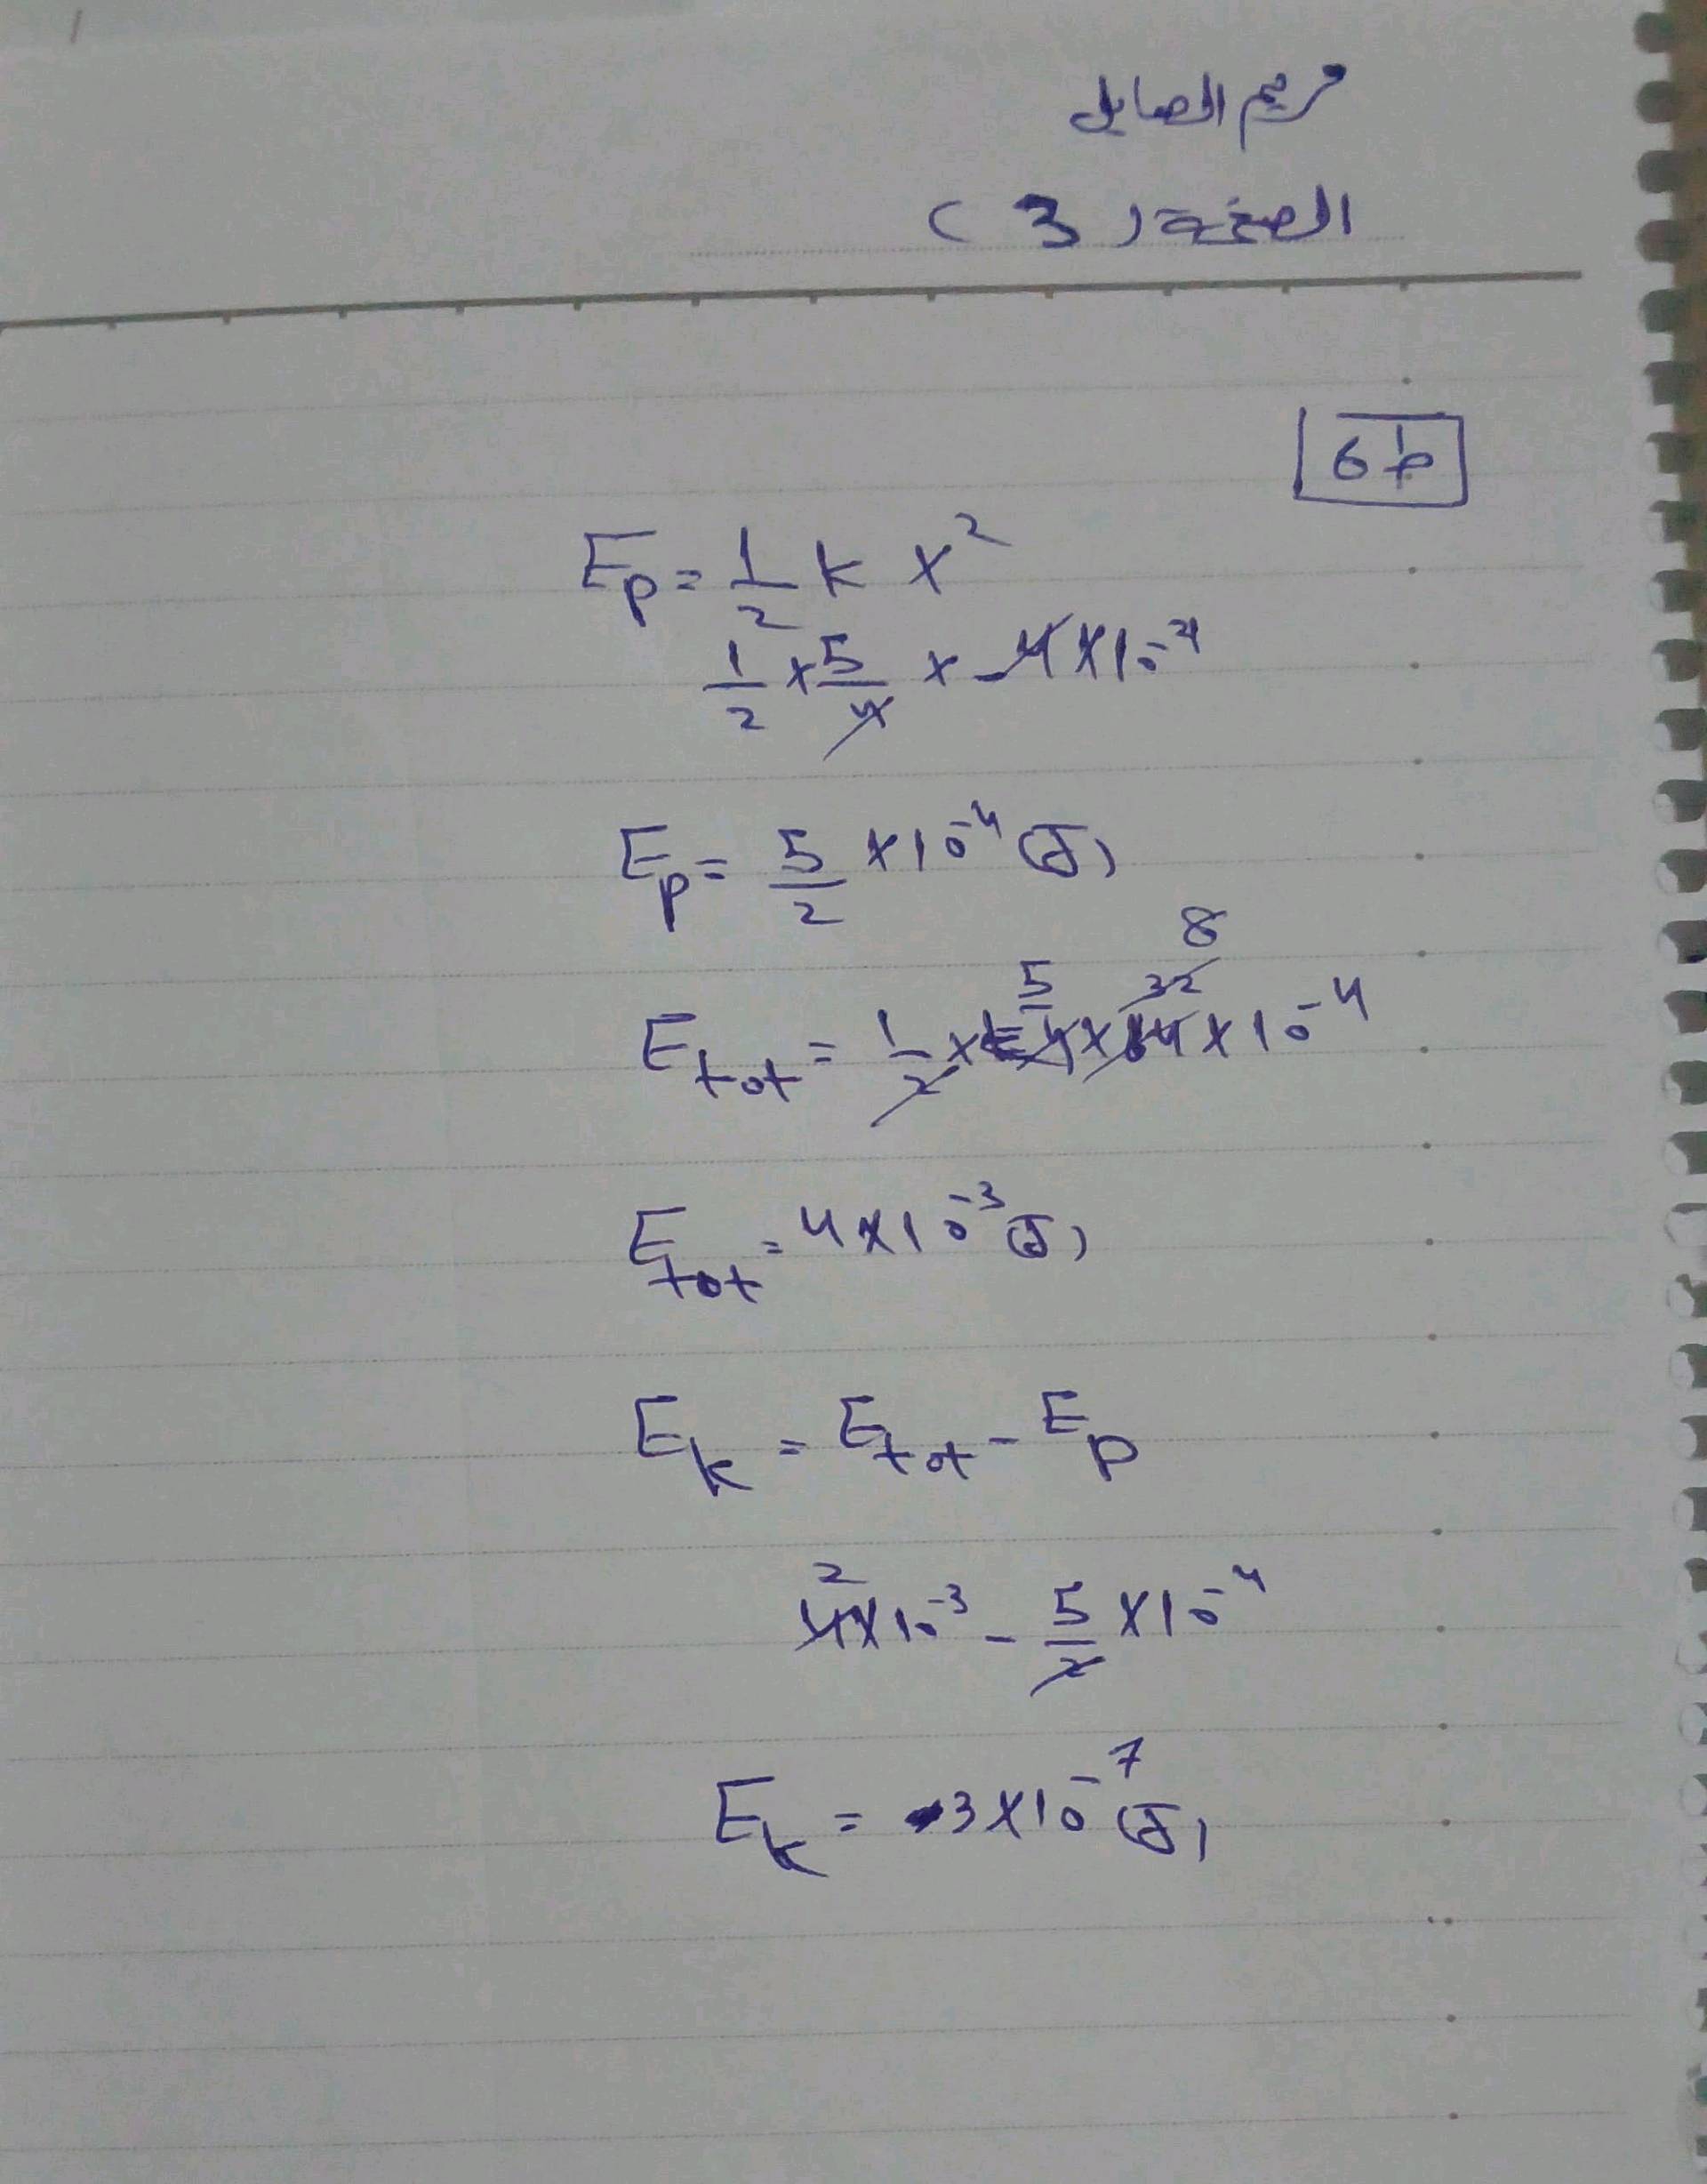 مريم
الصفحة (3)
6
Ep = 1/2 k x²
1/2 × 5/4 × -4 × 10⁻⁴
Ep = 5/2 × 10⁻⁴ (J)
8
5 32
Etot = 1/2 × × 64 × 10⁻⁴
Etot = 4 × 10⁻³ (J)
Ek = Etot - Ep
2
4 × 10⁻³ - 5/2 × 10⁻⁴
Ek = 3 × 10⁻⁷ (J)